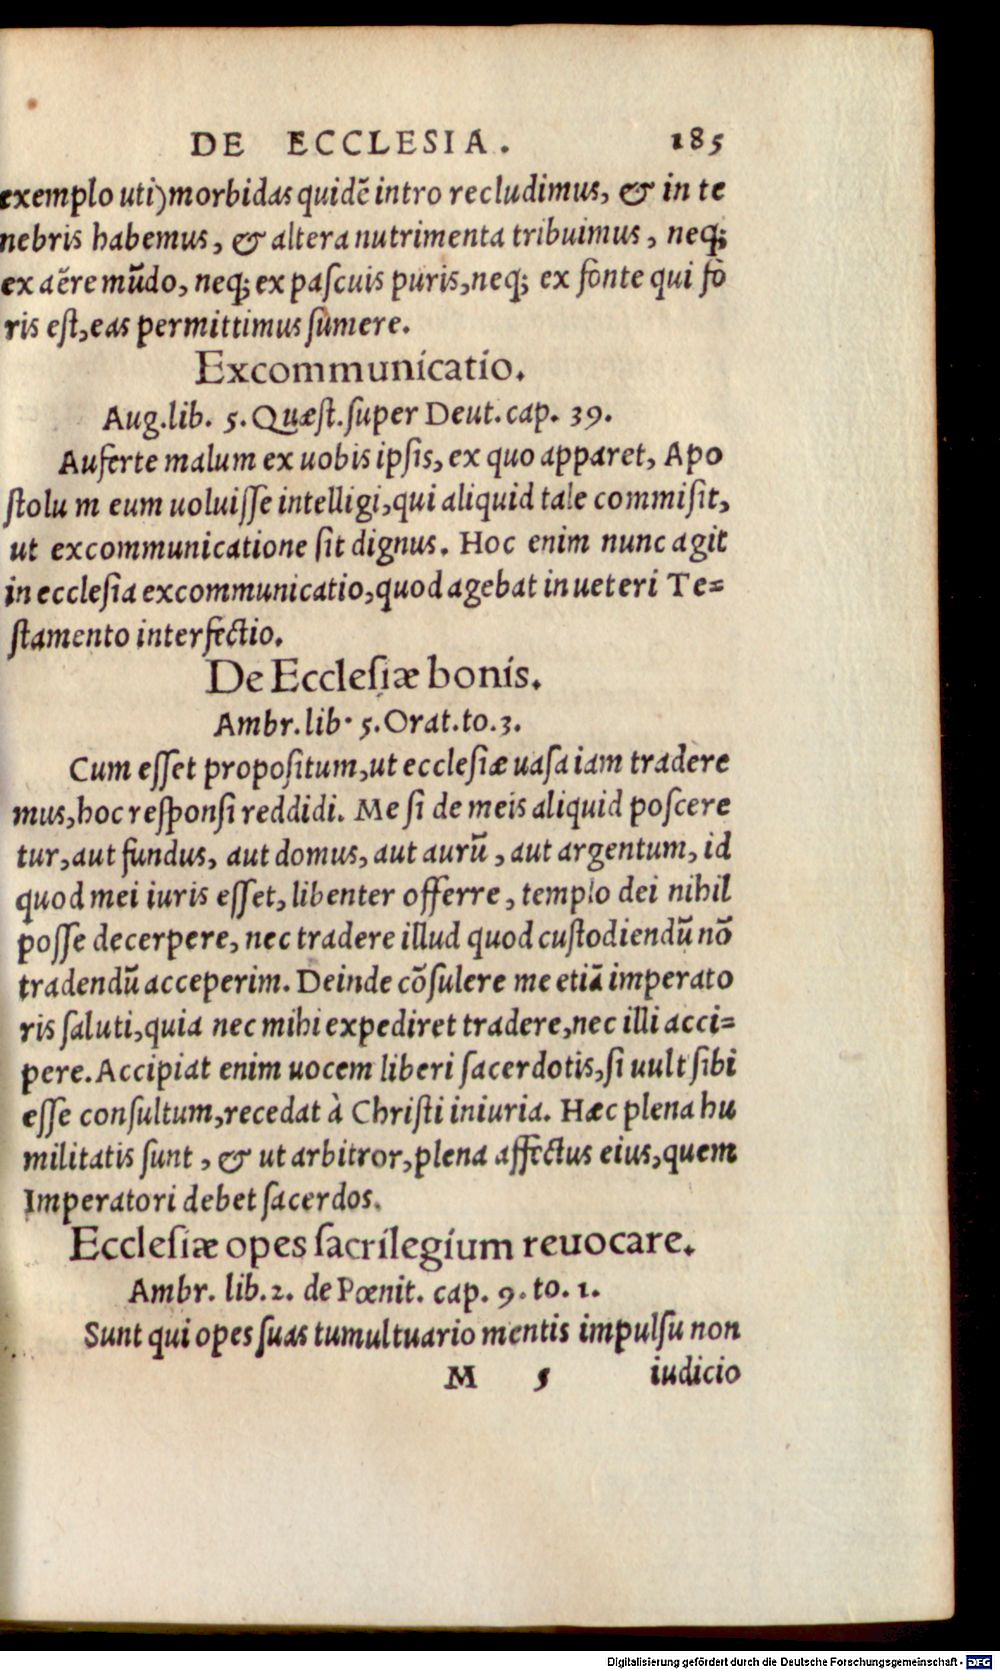 DE ECCLESIA. 185
exemplo uti) morbidas quidē intro recludimus, & in te
nebris habemus, & altera nutrimenta tribuimus, neq;
ex aëre mūdo, neq; ex paſcuis puris, neq; ex fonte qui fo
ris eſt, eas permittimus ſumere.
Excommunicatio.
Aug. lib. 5. Quæſt. ſuper Deut. cap. 39.
Auferte malum ex uobis ipſis, ex quo apparet, Apo
ſtolu m eum uoluiſſe intelligi, qui aliquid tale commiſit,
ut excommunicatione ſit dignus. Hoc enim nunc agit
in eccleſia excommunicatio, quod agebat in ueteri Te=
ſtamento interfectio.
De Eccleſiæ bonis.
Ambr. lib. 5. Orat. to. 3.
Cum eſſet propoſitum, ut eccleſiæ uaſa iam tradere
mus, hoc reſponſi reddidi. Me ſi de meis aliquid poſcere
tur, aut fundus, aut domus, aut aurū, aut argentum, id
quod mei iuris eſſet, libenter offerre, templo dei nihil
poſſe decerpere, nec tradere illud quod cuſtodiendū nō
tradendū acceperim. Deinde cōſulere me etiā imperato
ris ſaluti, quia nec mihi expediret tradere, nec illi acci=
pere. Accipiat enim uocem liberi ſacerdotis, ſi uult ſibi
eſſe conſultum, recedat à Chriſti iniuria. Hæc plena hu
militatis ſunt, & ut arbitror, plena affectus eius, quem
Imperatori debet ſacerdos.
Eccleſiæ opes ſacrilegium reuocare.
Ambr. lib. 2. de Pœnit. cap. 9. to. 1.
Sunt qui opes ſuas tumultuario mentis impulſu non
M 5 iudicio
Digitalisierung gefördert durch die Deutsche Forschungsgemeinschaft - DFG